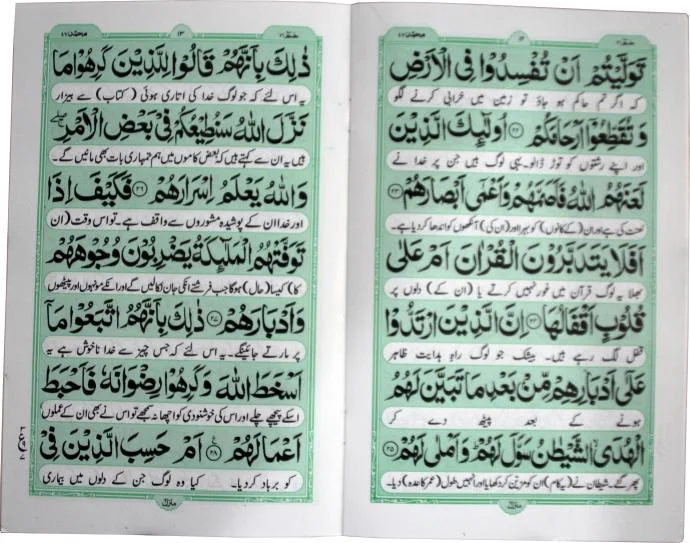 حٰمٓ ٢٦
١٢
محمد ٤٧
تَوَلَّيْتُمْ اَنْ تُفْسِدُوْا فِى الْاَرْضِ
کہ اگر تم حاکم ہو جاؤ تو زمین میں خرابی کرنے لگو
وَتُقَطِّعُوْٓا اَرْحَامَكُمْ ﴿٢٢﴾ اُولٰٓئِكَ الَّذِيْنَ
اور اپنے رشتوں کو توڑ ڈالو۔ یہی لوگ ہیں جن پر خدا نے
لَعَنَهُمُ اللّٰهُ فَاَصَمَّهُمْ وَاَعْمٰٓى اَبْصَارَهُمْ ﴿٢٣﴾
لعنت کی ہے اور ان (کے کانوں) کو بہرا اور (ان کی) آنکھوں کو اندھا کر دیا ہے۔
اَفَلَا يَتَدَبَّرُوْنَ الْقُرْاٰنَ اَمْ عَلٰى
بھلا یہ لوگ قرآن میں غور نہیں کرتے یا (ان کے) دلوں پر
قُلُوْبٍ اَقْفَالُهَا ﴿٢٤﴾ اِنَّ الَّذِيْنَ ارْتَدُّوْا
قفل لگ رہے ہیں۔ بیشک جو لوگ راہ ہدایت ظاہر
عَلٰٓى اَدْبَارِهِمْ مِّنْۢ بَعْدِ مَا تَبَيَّنَ لَهُمُ
ہونے کے بعد پیٹھ دے کر
الْهُدَى الشَّيْطٰنُ سَوَّلَ لَهُمْ وَاَمْلٰى لَهُمْ ﴿٢٥﴾
پھر گئے۔ شیطان نے (یہ کام) ان کو مزین کر دکھایا اور انہیں طول (عمر کا وعدہ) دیا۔
منزل
حٰمٓ ٢٦
١٣
محمد ٤٧
ذٰلِكَ بِاَنَّهُمْ قَالُوْا لِلَّذِيْنَ كَرِهُوْا مَا
یہ اس لئے کہ جو لوگ خدا کی اتاری ہوئی (کتاب) سے بیزار
نَزَّلَ اللّٰهُ سَنُطِيْعُكُمْ فِيْ بَعْضِ الْاَمْرِ
ہیں یہ ان سے کہتے ہیں کہ بعض کاموں میں ہم تمہاری بات بھی مانیں گے۔
وَاللّٰهُ يَعْلَمُ اِسْرَارَهُمْ ﴿٢٦﴾ فَكَيْفَ اِذَا
اور خدا ان کے پوشیدہ مشوروں سے واقف ہے۔ تو اس وقت (ان
تَوَفَّتْهُمُ الْمَلٰٓئِكَةُ يَضْرِبُوْنَ وُجُوْهَهُمْ
کا) کیسا (حال) ہوگا جب فرشتے انکی جان نکالیں گے اور انکے مونہوں اور پیٹھوں
وَاَدْبَارَهُمْ ﴿٢٧﴾ ذٰلِكَ بِاَنَّهُمُ اتَّبَعُوْا مَآ
پر مارتے جائینگے۔ یہ اس لئے کہ جس چیز سے خدا ناخوش ہے یہ
اَسْخَطَ اللّٰهَ وَكَرِهُوْا رِضْوَانَهٗ فَاَحْبَطَ
اسکے پیچھے چلے اور اس کی خوشنودی کو اچھا نہ سمجھے تو اس نے بھی ان کے عملوں
اَعْمَالَهُمْ ﴿٢٨﴾ اَمْ حَسِبَ الَّذِيْنَ فِيْ
کو برباد کر دیا۔ کیا وہ لوگ جن کے دلوں میں بیماری
منزل